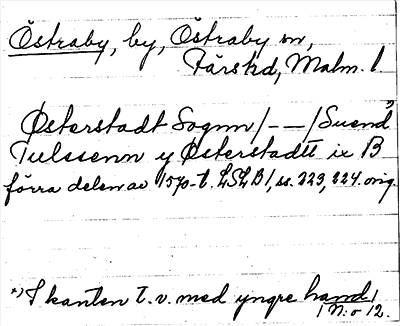 Östraby, by, Östraby sn,
Färs hd, Malm. l
Østerstadt Sognn /--/ Suend *)
Tulssenn y Østerstadtt ix B
förra delen av 1570-t. LSLB 1, ss. 223, 224. orig.
*) I kanten t.v. med yngre hand /
/ N:o 12.